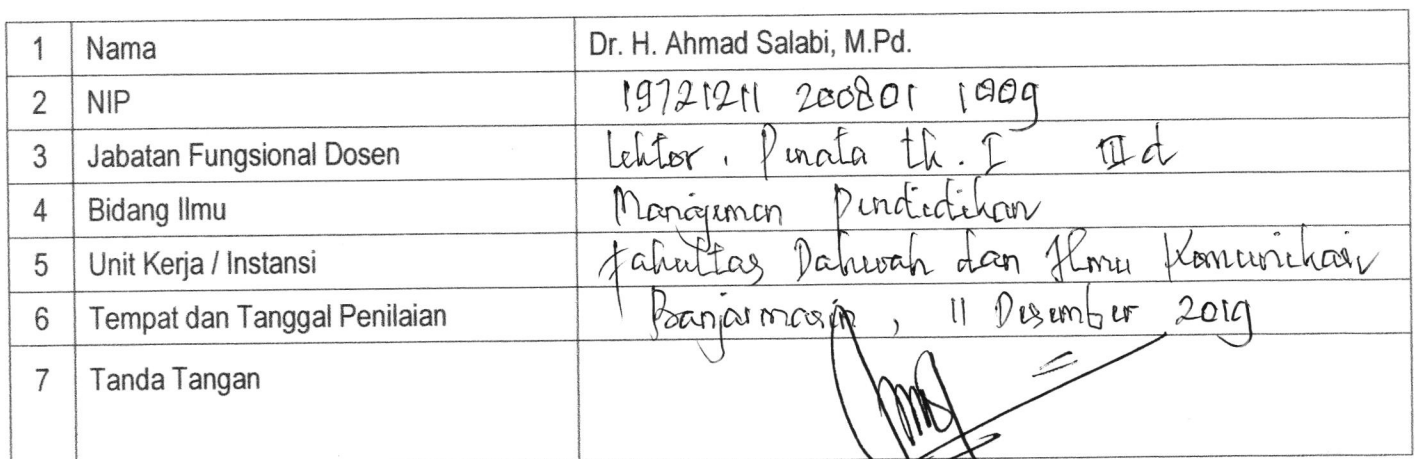 1 Nama Dr. H. Ahmad Salabi, M.Pd.
2 NIP 19721211 200801 1009
3 Jabatan Fungsional Dosen Lektor. Penata tk. I III d
4 Bidang Ilmu Manajemen Pendidikan
5 Unit Kerja / Instansi Fakultas Dakwah dan Ilmu Komunikasi
6 Tempat dan Tanggal Penilaian Banjarmasin, 11 Desember 2019
7 Tanda Tangan